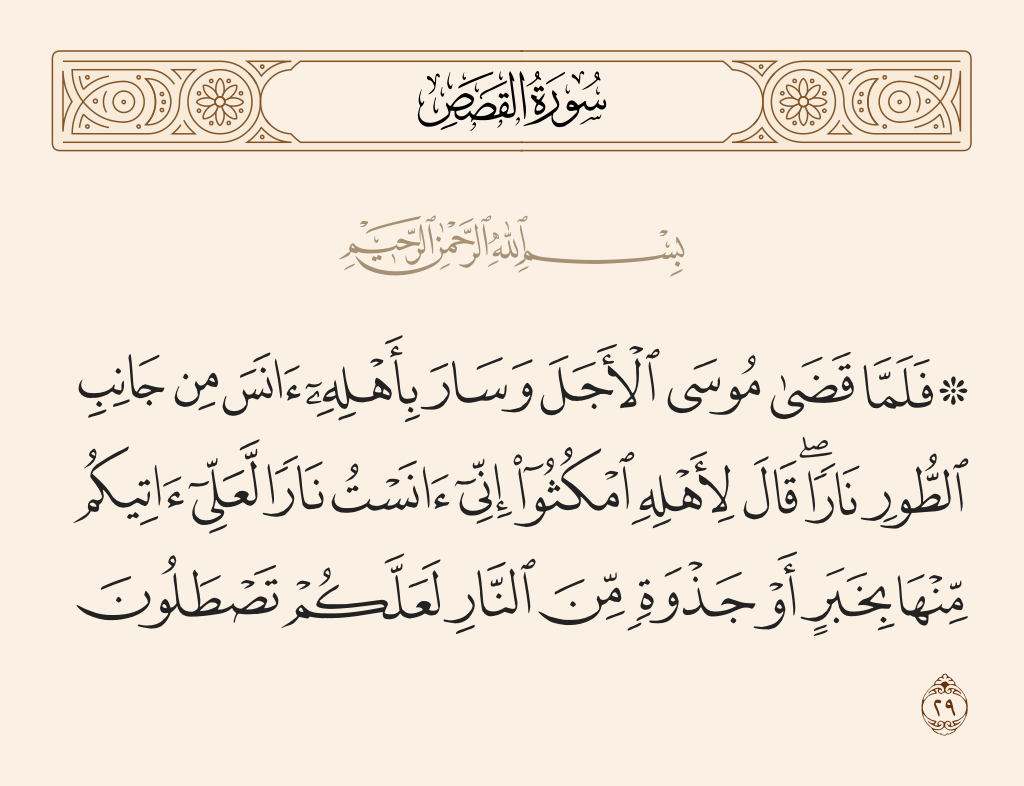 سُورَةُ القَصَصِ
بِسْمِ ٱللَّهِ ٱلرَّحْمَٰنِ ٱلرَّحِيمِ
۞ فَلَمَّا قَضَىٰ مُوسَى ٱلْأَجَلَ وَسَارَ بِأَهْلِهِۦٓ ءَانَسَ مِن جَانِبِ
ٱلطُّورِ نَارًاۖ قَالَ لِأَهْلِهِ ٱمْكُثُوٓا۟ إِنِّىٓ ءَانَسْتُ نَارًا لَّعَلِّىٓ ءَاتِيكُم
مِّنْهَا بِخَبَرٍ أَوْ جَذْوَةٍ مِّنَ ٱلنَّارِ لَعَلَّكُمْ تَصْطَلُونَ
٢٩